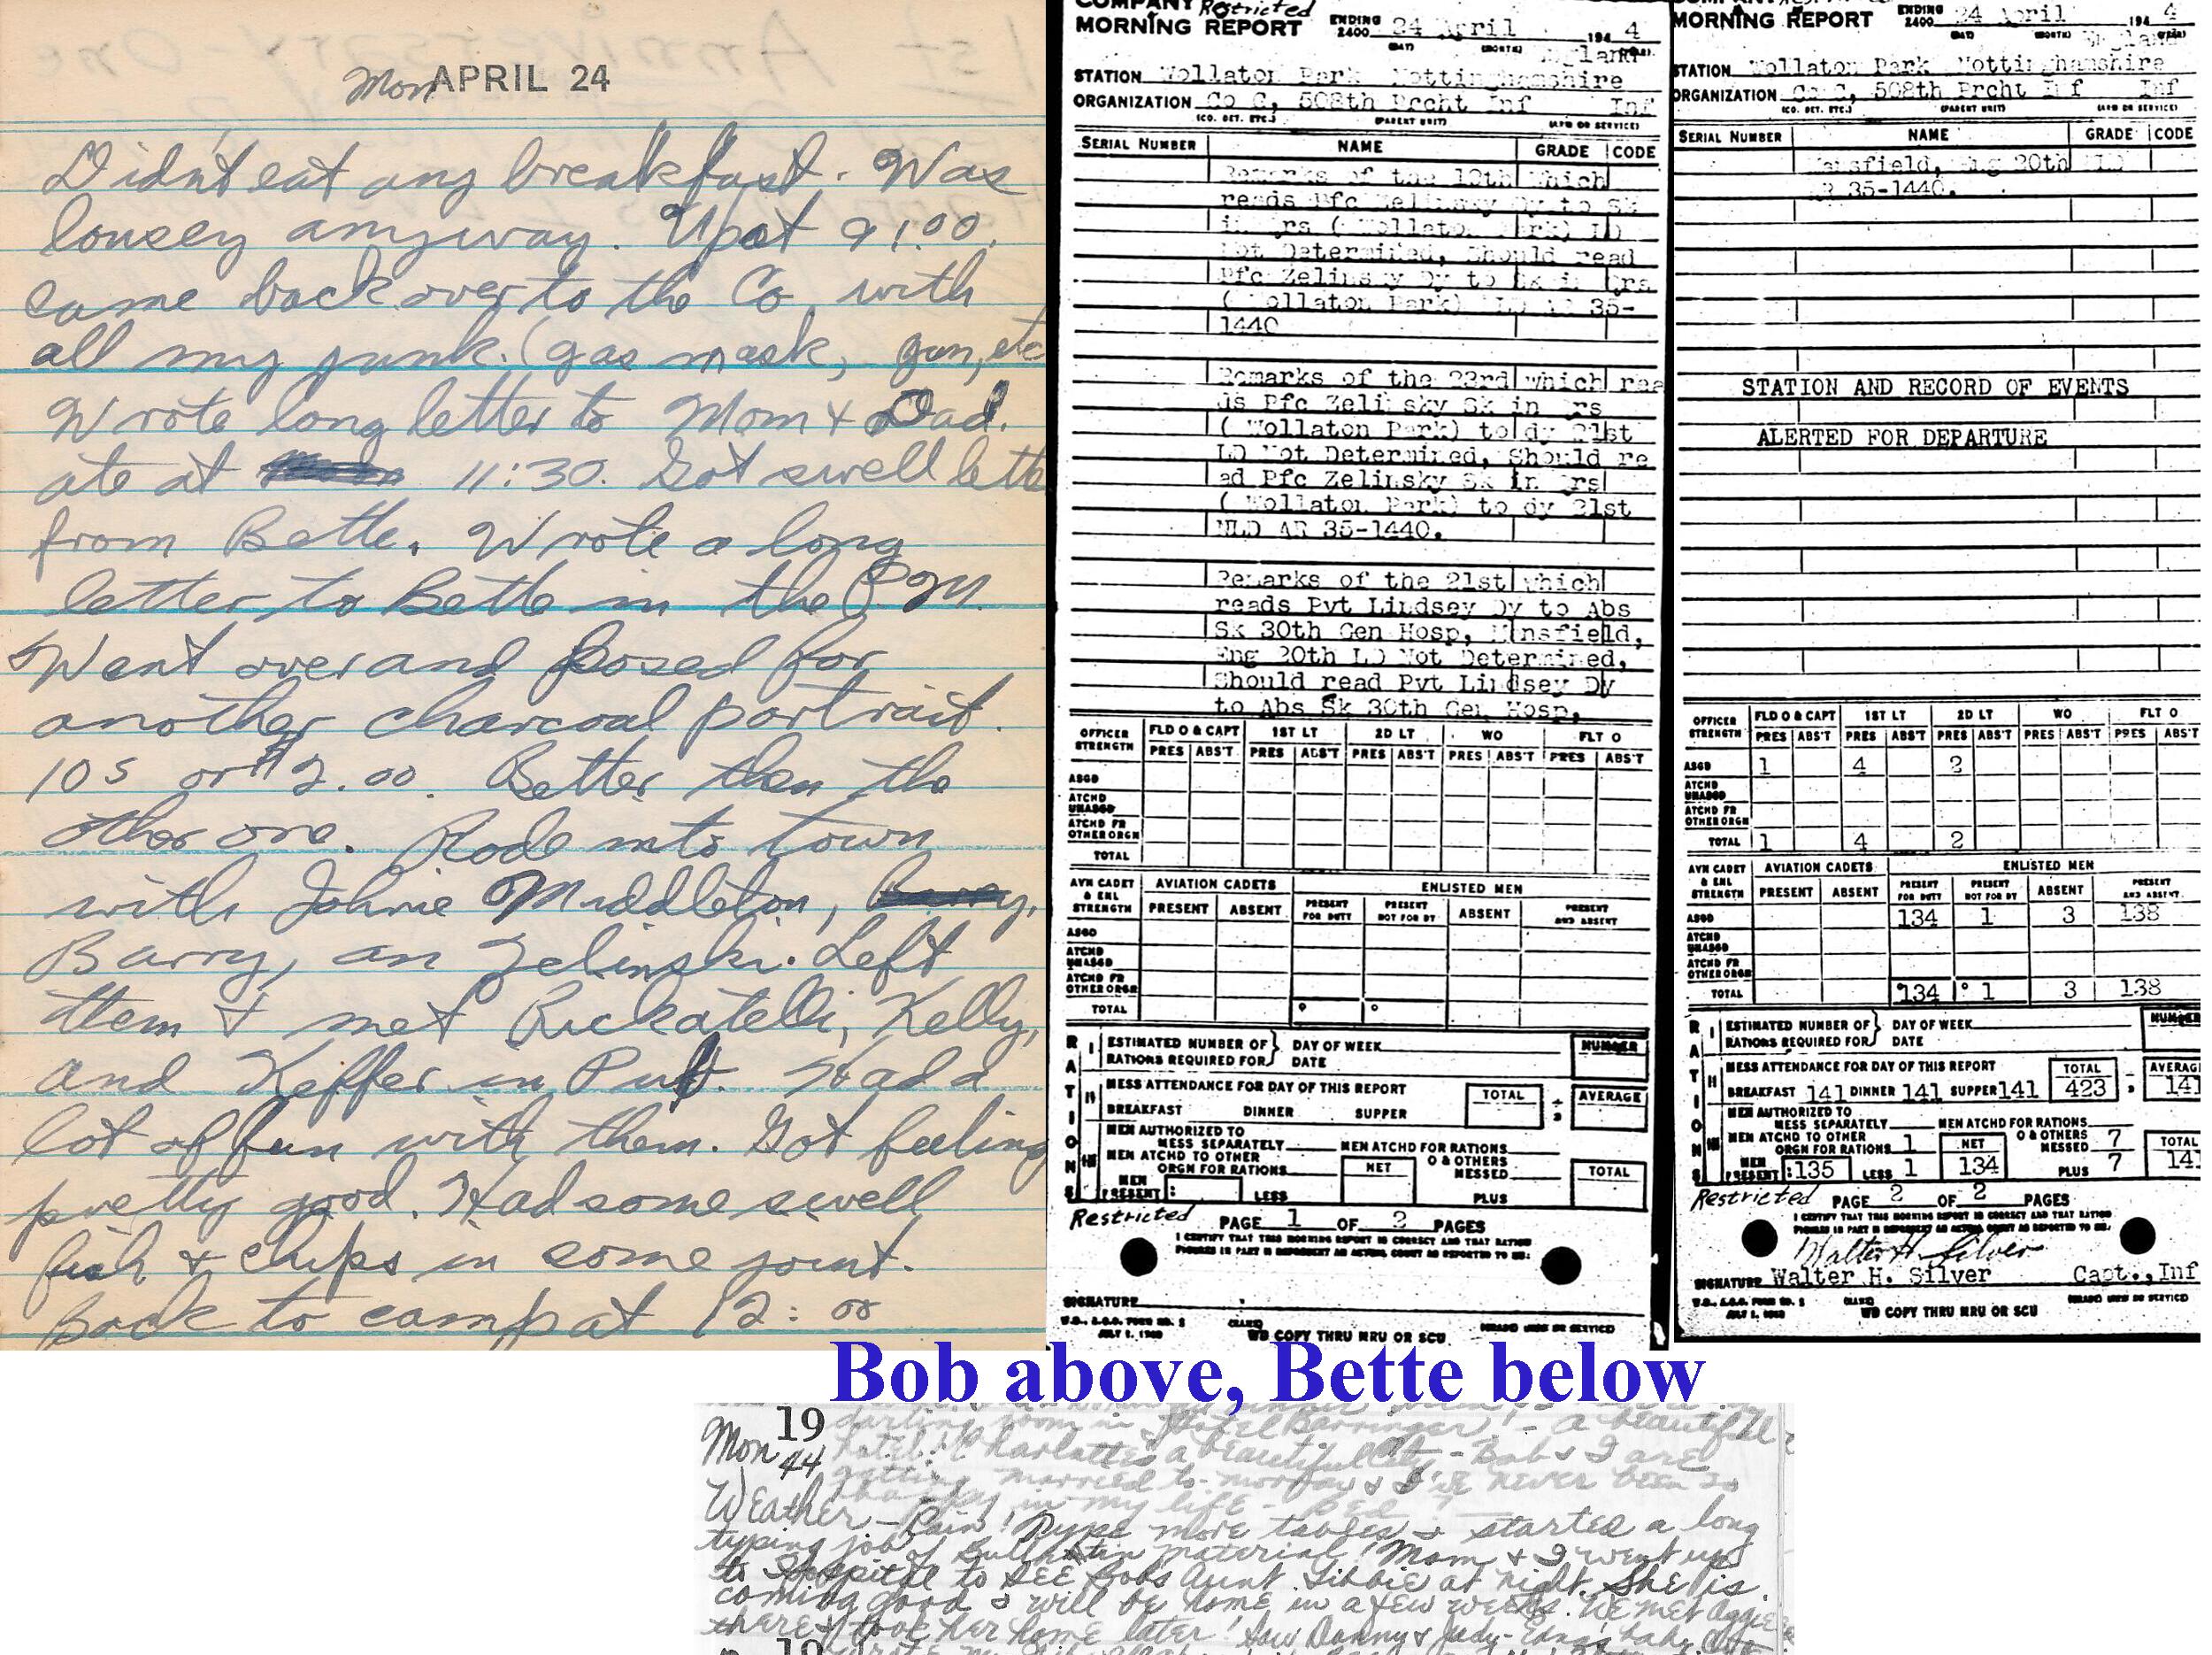 Mon APRIL 24
Didn't eat any breakfast. Was
lousey anyway. Up at 9:00.
came back over to the Co. with
all my junk. (gas mask, gun, etc
Wrote long letter to Mom + Dad.
ate at 11:30. Got swell lette
from Bette. Wrote a long
letter to Bette in the P.M.
Went over and posed for
another charcoal portrait.
10s or $2.00. Better then the
other one. Rode into town
with Johnie Middleton, Barry,
Barry, an Zelinski. Left
them + met Rickatelli, Kelly,
and Keffer in Pub. Had a
lot of fun with them. Got feeling
pretty good. Had some swell
fish + chips in some joint.
Back to camp at 12:00
COMPANY Restricted
MORNING REPORT ENDING 2400 24 April 194 4
(DAY) (MONTH) (YEAR)
England
STATION Wollaton Park Nottinghamshire
ORGANIZATION Co C, 508th Prcht Inf Inf
(CO. DET. ETC.) (PARENT UNIT) (ARM OR SERVICE)
SERIAL NUMBER NAME GRADE CODE
Remarks of the 19th which
reads Pfc Zelinsky Dy to Sk
in Qrs (Wollaton Park) LD
Not Determined, Should read
Pfc Zelinsky Dy to Sk in Qrs
(Wollaton Park) 35-
1440
Remarks of the 23rd which rea
ds Pfc Zelinsky Sk in Qrs
(Wollaton Park) to dy 21st
LD Not Determined, Should re
ad Pfc Zelinsky Sk in Qrs
(Wollaton Park) to dy 21st
NLD AR 35-1440.
Remarks of the 21st which
reads Pvt Lindsey Dy to Abs
Sk 30th Gen Hosp, Mansfield,
Eng 20th LD Not Determined,
Should read Pvt Lindsey Dy
to Abs Sk 30th Gen Hosp,
OFFICER STRENGTH FLD O & CAPT 1ST LT 2D LT WO FLT O
PRES ABS'T PRES ABS'T PRES ABS'T PRES ABS'T PRES ABS'T
ASGD
ATCHD UNASGD
ATCHD FR OTHER ORGN
TOTAL
AVN CADET & ENL STRENGTH AVIATION CADETS ENLISTED MEN
PRESENT ABSENT PRESENT FOR DUTY PRESENT NOT FOR DY ABSENT PRESENT AND ABSENT
ASGD
ATCHD UNASGD
ATCHD FR OTHER ORGN
TOTAL
RATIONS
I ESTIMATED NUMBER OF RATIONS REQUIRED FOR } DAY OF WEEK DATE NUMBER
II MESS ATTENDANCE FOR DAY OF THIS REPORT TOTAL ÷ AVERAGE
BREAKFAST DINNER SUPPER
III MEN AUTHORIZED TO MESS SEPARATELY MEN ATCHD FOR RATIONS
MEN ATCHD TO OTHER ORGN FOR RATIONS NET O & OTHERS MESSED TOTAL
MEN PRESENT: LESS PLUS
Restricted PAGE 1 OF 2 PAGES
I CERTIFY THAT THIS MORNING REPORT IS CORRECT AND THAT RATION
FIGURES IN PART III REPRESENT AN ACTUAL COUNT AS REPORTED TO ME:
SIGNATURE
W.D., A.G.O. FORM NO. 1
JULY 1, 1943 WD COPY THRU MRU OR SCU
MORNING REPORT ENDING 2400 24 April 194 4
(DAY) (MONTH) (YEAR)
England
STATION Wollaton Park Nottinghamshire
ORGANIZATION Co C, 508th Prcht Inf Inf
(CO. DET. ETC.) (PARENT UNIT) (ARM OR SERVICE)
SERIAL NUMBER NAME GRADE CODE
Mansfield, Eng 20th LD
AR 35-1440.
STATION AND RECORD OF EVENTS
ALERTED FOR DEPARTURE
OFFICER STRENGTH FLD O & CAPT 1ST LT 2D LT WO FLT O
PRES ABS'T PRES ABS'T PRES ABS'T PRES ABS'T PRES ABS'T
ASGD 1 4 2
ATCHD UNASGD
ATCHD FR OTHER ORGN
TOTAL 1 4 2
AVN CADET & ENL STRENGTH AVIATION CADETS ENLISTED MEN
PRESENT ABSENT PRESENT FOR DUTY PRESENT NOT FOR DY ABSENT PRESENT AND ABSENT
ASGD 134 1 3 138
ATCHD UNASGD
ATCHD FR OTHER ORGN
TOTAL 134 1 3 138
RATIONS
I ESTIMATED NUMBER OF RATIONS REQUIRED FOR } DAY OF WEEK DATE NUMBER
II MESS ATTENDANCE FOR DAY OF THIS REPORT TOTAL AVERAGE
BREAKFAST 141 DINNER 141 SUPPER 141 423 ÷ 141
III MEN AUTHORIZED TO MESS SEPARATELY MEN ATCHD FOR RATIONS
MEN ATCHD TO OTHER ORGN FOR RATIONS 1 NET O & OTHERS MESSED 7 TOTAL
MEN PRESENT: 135 LESS 1 134 PLUS 7 141
Restricted PAGE 2 OF 2 PAGES
I CERTIFY THAT THIS MORNING REPORT IS CORRECT AND THAT RATION
FIGURES IN PART III REPRESENT AN ACTUAL COUNT AS REPORTED TO ME:
Walter H. Silver
SIGNATURE Walter H. Silver Capt., Inf
W.D., A.G.O. FORM NO. 1
JULY 1, 1943 WD COPY THRU MRU OR SCU
Bob above, Bette below
19 darling room in Hotel Barringer! - A beautiful
Mon 44 hotel! Charlotte's a beautiful city - Bob & I are
getting married to-morrow & I've never been so
happy in my life -
Weather - Rain! Type more tables & started a long
typing job of Bulletin material! Mom & I went up
to Hospital to see Bobs Aunt Libbie at night. She is
coming good & will be home in a few weeks. We met Aggie
there & took her home later! Saw Danny & Judy - Edna's baby. Cute
19